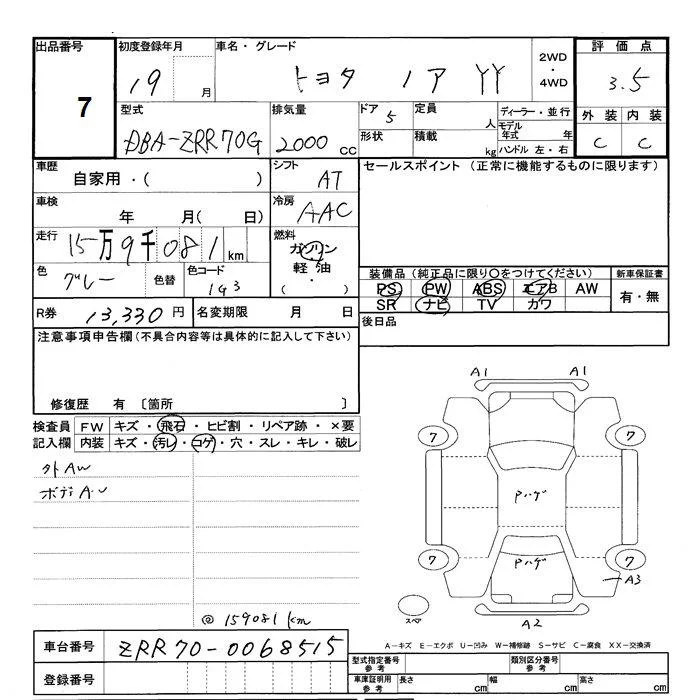 出品番号 初度登録年月 車名・グレード 2WD・4WD 評価点
7 19 月 トヨタ ノア YY 3.5
型式 排気量 ドア 5 定員 人 ディーラー・並行 外装 内装
DBA-ZRR70G 2000 CC 形状 積載 kg モデル年式 年 ハンドル 左・右 C C
車歴 自家用・( ) シフト AT セールスポイント (正常に機能するものに限ります)
車検 年 月( 日) 冷房 AAC
走行 15万9千081km 燃料 ガソリン 軽油 ・( )
色 グレー 色替 色コード 1G3
装備品(純正品に限り○をつけてください) 新車保証書
PS PW ABS エアB AW 有・無
SR ナビ TV カワ
R券 13,330円 名変期限 月 日 後日品
注意事項申告欄(不具合内容等は具体的に記入して下さい)
修復歴 有 〔箇所 〕
検査員 FW キズ・飛石・ヒビ割・リペア跡・×要
記入欄 内装 キズ・汚レ・コゲ・穴・スレ・キレ・破レ
外AW
ボデイ A.U
@ 159081km
A1 A1
7 7
Pハゲ
Pハゲ
7 7
A3
スペア
A2
A-キズ E-エクボ U-凹み W-補修跡 S-サビ C-腐食 XX-交換済
車台番号 ZRR70-0068515
登録番号
型式指定番号 参考 類別区分番号 参考
車庫証明用 参考 長さ cm 幅 cm 高さ cm